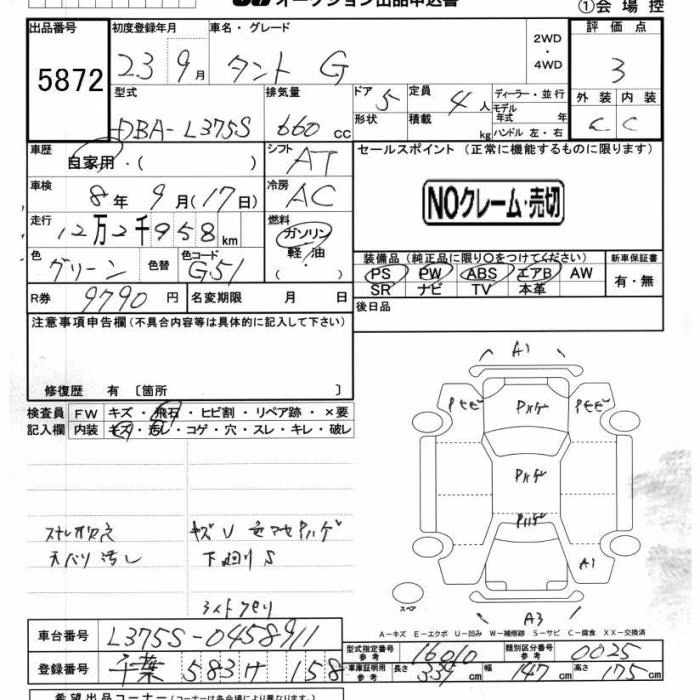 オークション出品申込書
①会場控
出品番号
5872
初度登録年月
23 9月
車名・グレード
タント G
2WD
・
4WD
評価点
3
型式
DBA-L375S
排気量
660 cc
ドア 5
形状
定員 4人
積載 kg
ディーラー・並行
モデル年式 年
ハンドル 左・右
外装 内装
C C
車歴
自家用・( )
シフト
AT
セールスポイント (正常に機能するものに限ります)
NOクレーム・売切
車検
8年 9月(17日)
冷房
AC
走行
12万2千958km
燃料
ガソリン
軽油
色
グリーン
色替
色コード
G51
装備品 (純正品に限り○をつけてください)
PS PW ABS エアB AW
SR ナビ TV 本革
新車保証書
有・無
R券 9790円
名変期限 月 日
後日品
注意事項申告欄(不具合内容等は具体的に記入して下さい)
修復歴 有 〔箇所 〕
検査員
記入欄
FW キズ・飛石・ヒビ割・リペア跡・×要
内装 キズ・汚レ・コゲ・穴・スレ・キレ・破レ
ステレオ欠品
天バリ汚し
キズU 色アセPハゲ
下廻りS
A1
Pモビ Pハゲ Pモビ
Pハゲ
Pハゲ
A1
スペア
A3
A-キズ E-エクボ U-凹み W-補修跡 S-サビ C-腐食 XX-交換済
車台番号 L375S-0458911
型式指定番号 参考 16010
類別区分番号 参考 0025
登録番号 千葉 583け 158
車庫証明用 参考 長さ 339cm 幅 147cm 高さ 175cm
希望出品コーナー(コーナーは各会場により異なります。)